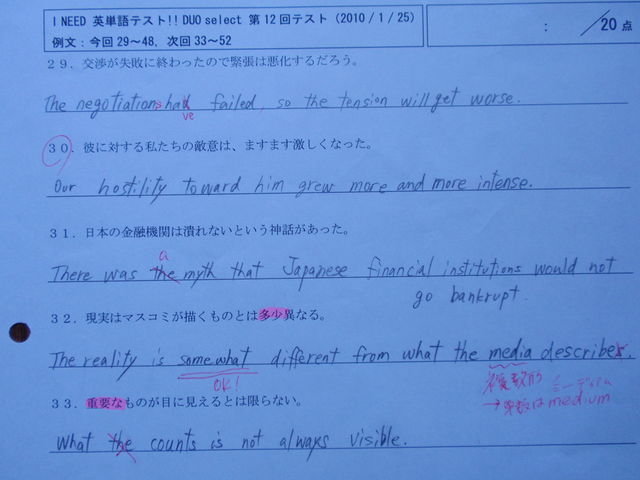 I NEED 英単語テスト!! DUO select 第12回テスト (2010/1/25)
例文：今回29～48, 次回33～52
： ／20点
29．交渉が失敗に終わったので緊張は悪化するだろう。
The negotiations had failed, so the tension will get worse.
ve
30．彼に対する私たちの敵意は、ますます激しくなった。
Our hostility toward him grew more and more intense.
31．日本の金融機関は潰れないという神話があった。
a
There was the myth that Japanese financial institutions would not
go bankrupt.
32．現実はマスコミが描くものとは多少異なる。
The reality is somewhat different from what the media describes.
OK!
複数形 ミーディアム
→単数は medium
33．重要なものが目に見えるとは限らない。
What the counts is not always visible.